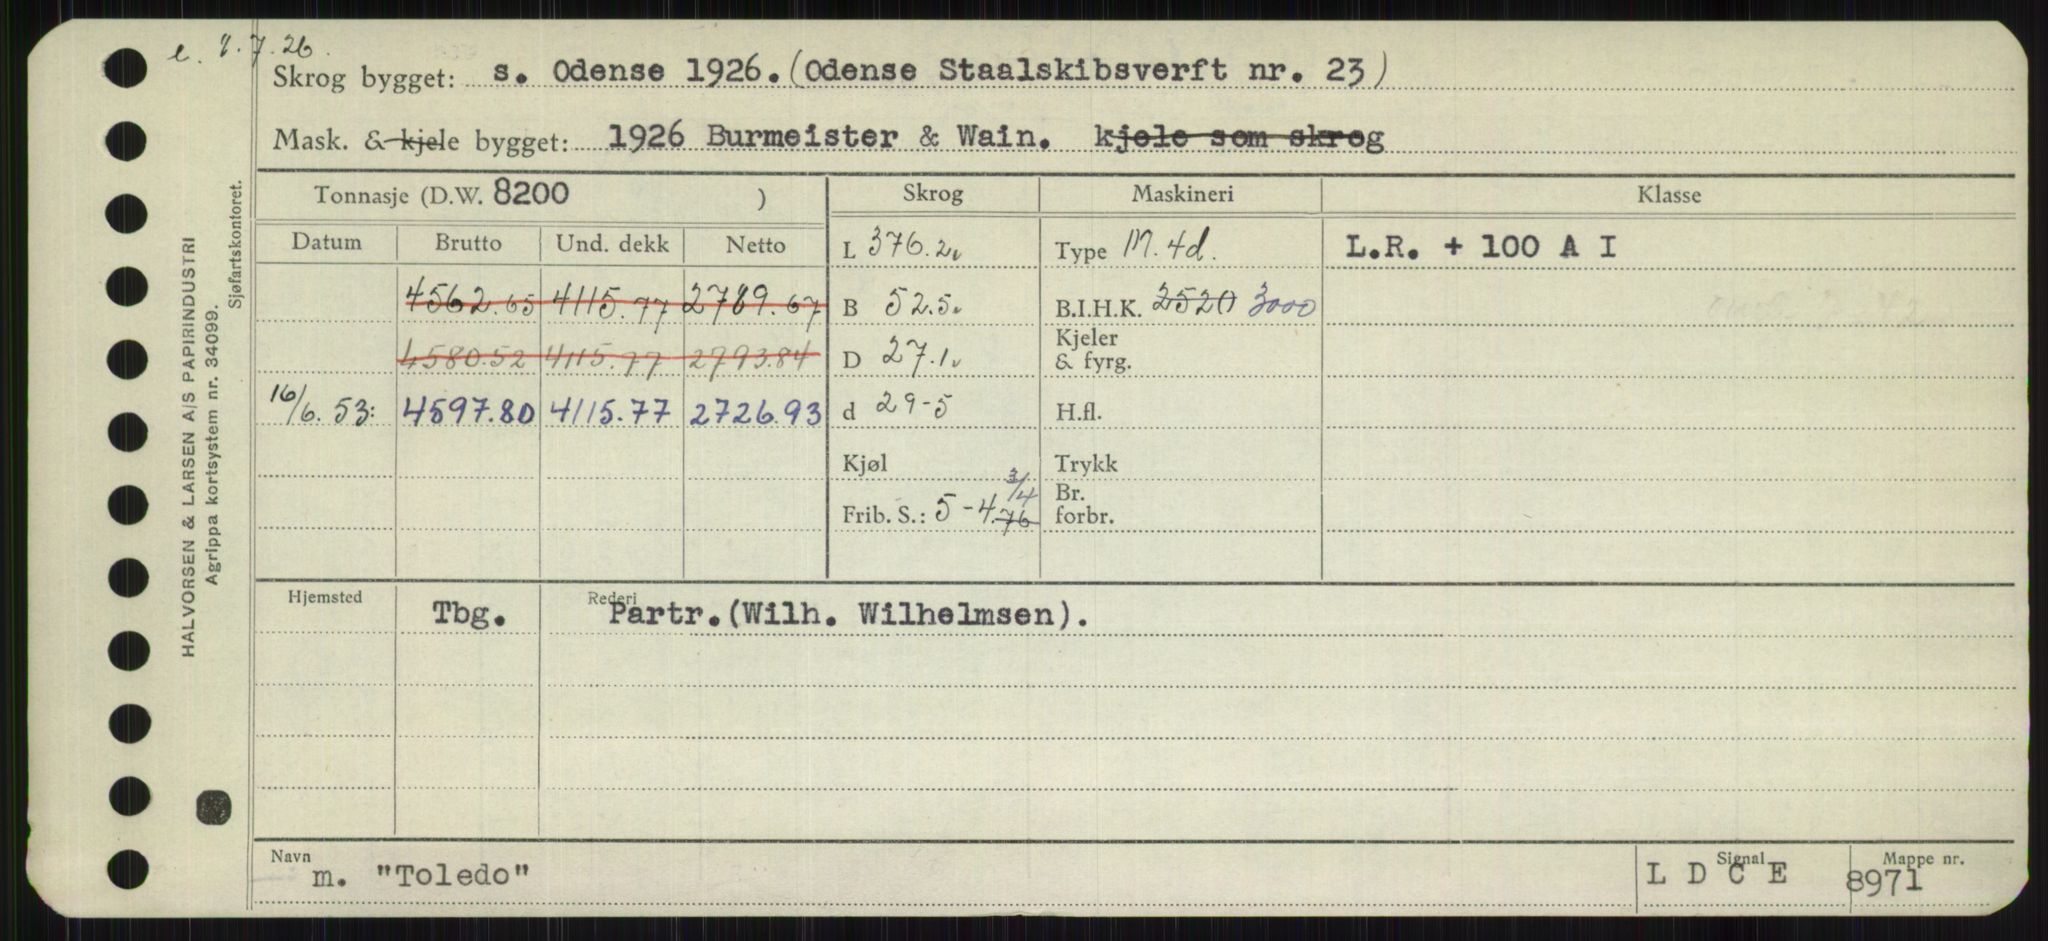 e. 7.7.26.
Skrog bygget: s. Odense 1926. (Odense Staalskibsverft nr. 23)
Mask. & kjele bygget: 1926 Burmeister & Wain. kjele som skrog
Tonnasje (D.W. 8200 ) Skrog Maskineri Klasse
Datum Brutto Und. dekk Netto L 376.2 Type M. 4d. L.R. + 100 A I
4562.65 4115.77 2789.67 B 52.5 B.I.H.K. 2520 3000
Kjeler
4580.52 4115.77 2793.84 D 27.1 & fyrg.
16/6. 53: 4597.80 4115.77 2726.93 d 29-5 H.fl.
Kjøl Trykk
Br.
Frib. S.: 5-4.76 3/4 forbr.
Hjemsted Tbg. Rederi Partr.(Wilh. Wilhelmsen).
Navn m. "Toledo" Signal L D C E Mappe nr. 8971
HALVORSEN & LARSEN A/S PAPIRINDUSTRI
Agrippa kortsystem nr. 34099.
Sjøfartskontoret.